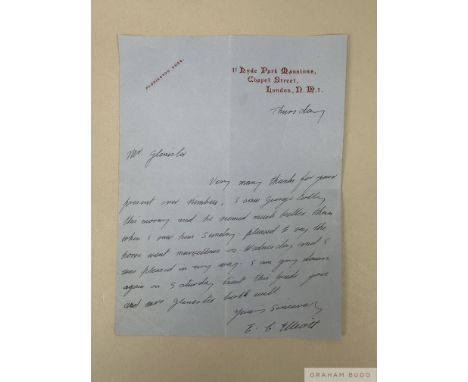 PADDINGTON 7286.
Hyde Park Mansions,
Chapel Street,
London, N.W.1.
Thursday
Mr. Gloucester
Very many thanks for your
present over numbers. I saw George Colby
this morning and he seemed much better than
when I saw him Sunday pleased to say the
horse went marvellous on Wednesday and I
was pleased in every way. I am going down
again on Saturday trust this finds you
and Mrs Gloucester both well
Yours Sincerely
E. C.
GRAHAM BUDD